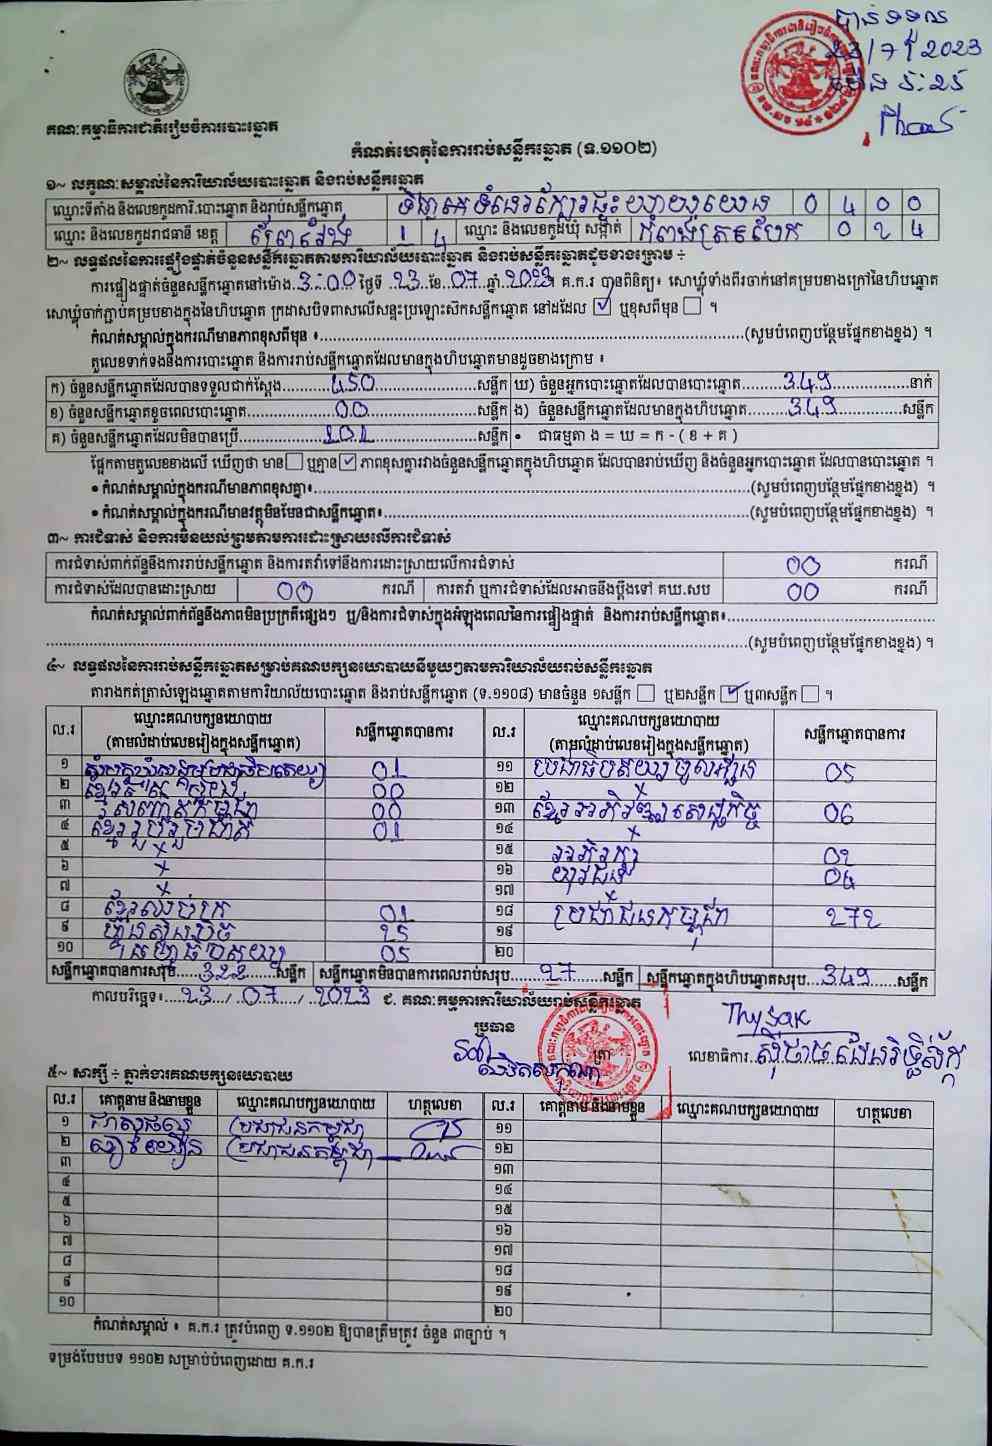 បានទទួល
23/7/2023
ម៉ោង ៤:២៥
គណៈកម្មាធិការជាតិរៀបចំការបោះឆ្នោត
កំណត់ហេតុនៃការរាប់សន្លឹកឆ្នោត (ទ.១១០២)
១~ លក្ខណៈសម្គាល់នៃការិយាល័យបោះឆ្នោត និងរាប់សន្លឹកឆ្នោត
ឈ្មោះទីតាំង និងលេខកូដការិ.បោះឆ្នោត និងរាប់សន្លឹកឆ្នោត 0 4 0 0
ឈ្មោះ និងលេខកូដរាជធានី ខេត្ត ព្រៃវែង 1 4 ឈ្មោះ និងលេខកូដឃុំ សង្កាត់ កំពង់ត្របែក 0 2 4
២~ លទ្ធផលនៃការផ្ទៀងផ្ទាត់ចំនួនសន្លឹកឆ្នោតតាមការិយាល័យបោះឆ្នោត និងរាប់សន្លឹកឆ្នោតដូចខាងក្រោម ÷
ការផ្ទៀងផ្ទាត់ចំនួនសន្លឹកឆ្នោតនៅម៉ោង 3:00 ថ្ងៃទី 23 ខែ 07 ឆ្នាំ 2023 គ.ក.រ បានពិនិត្យ៖ សោឃ្លុំទាំងពីរចាក់នៅគម្របខាងក្រៅនៃហិបឆ្នោត
សោឃ្លុំចាក់ភ្ជាប់គម្របខាងក្នុងនៃហិបឆ្នោត ក្រដាសបិទពាសលើសន្ទះប្រឡោះសិកសន្លឹកឆ្នោត នៅដដែល ✓ ឬខុសពីមុន ។
កំណត់សម្គាល់ក្នុងករណីមានភាពខុសពីមុន ៖ (សូមបំពេញបន្ថែមផ្នែកខាងខ្នង) ។
តួលេខទាក់ទងនឹងការបោះឆ្នោត និងការរាប់សន្លឹកឆ្នោតដែលមានក្នុងហិបឆ្នោតមានដូចខាងក្រោម ៖
ក) ចំនួនសន្លឹកឆ្នោតដែលបានទទួលជាក់ស្តែង 450 សន្លឹក ឃ) ចំនួនអ្នកបោះឆ្នោតដែលបានបោះឆ្នោត 349 នាក់
ខ) ចំនួនសន្លឹកឆ្នោតខូចពេលបោះឆ្នោត 00 សន្លឹក ង) ចំនួនសន្លឹកឆ្នោតដែលមានក្នុងហិបឆ្នោត 349 សន្លឹក
គ) ចំនួនសន្លឹកឆ្នោតដែលមិនបានប្រើ 101 សន្លឹក • ជាធម្មតា ង = ឃ = ក - ( ខ + គ )
ផ្អែកតាមតួលេខខាងលើ ឃើញថា មាន ឬគ្មាន ✓ ភាពខុសគ្នារវាងចំនួនសន្លឹកឆ្នោតក្នុងហិបឆ្នោត ដែលបានរាប់ឃើញ និងចំនួនអ្នកបោះឆ្នោត ដែលបានបោះឆ្នោត ។
• កំណត់សម្គាល់ក្នុងករណីមានភាពខុសគ្នា៖ (សូមបំពេញបន្ថែមផ្នែកខាងខ្នង) ។
• កំណត់សម្គាល់ក្នុងករណីមានវត្ថុមិនមែនជាសន្លឹកឆ្នោត៖ (សូមបំពេញបន្ថែមផ្នែកខាងខ្នង) ។
៣~ ការជំទាស់ និងការមិនយល់ព្រមតាមការដោះស្រាយលើការជំទាស់
ការជំទាស់ពាក់ព័ន្ធនឹងការរាប់សន្លឹកឆ្នោត និងការតវ៉ាទៅនឹងការដោះស្រាយលើការជំទាស់ 00 ករណី
ការជំទាស់ដែលបានដោះស្រាយ 00 ករណី ការតវ៉ា ឬការជំទាស់ដែលអាចនឹងប្តឹងទៅ គឃ.សប 00 ករណី
កំណត់សម្គាល់ពាក់ព័ន្ធនឹងភាពមិនប្រក្រតីផ្សេងៗ ឬ/និងការជំទាស់ក្នុងអំឡុងពេលនៃការផ្ទៀងផ្ទាត់ និងការរាប់សន្លឹកឆ្នោត៖
(សូមបំពេញបន្ថែមផ្នែកខាងខ្នង) ។
៤~ លទ្ធផលនៃការរាប់សន្លឹកឆ្នោតសម្រាប់គណបក្សនយោបាយនីមួយៗតាមការិយាល័យរាប់សន្លឹកឆ្នោត
តារាងកត់ត្រាសំឡេងឆ្នោតតាមការិយាល័យបោះឆ្នោត និងរាប់សន្លឹកឆ្នោត (ទ.១១០៨) មានចំនួន ១សន្លឹក ឬ២សន្លឹក ✓ ឬ៣សន្លឹក ។
ល.រ ឈ្មោះគណបក្សនយោបាយ (តាមលំដាប់លេខរៀងក្នុងសន្លឹកឆ្នោត) សន្លឹកឆ្នោតបានការ ល.រ ឈ្មោះគណបក្សនយោបាយ (តាមលំដាប់លេខរៀងក្នុងសន្លឹកឆ្នោត) សន្លឹកឆ្នោតបានការ
១ 01 ១១ 05
២ 00 ១២ x
៣ 00 ១៣ ខ្មែរអភិវឌ្ឍសេដ្ឋកិច្ច 06
៤ ខ្មែររួបរួមជាតិ 01 ១៤ x
៥ x ១៥ 02
៦ x ១៦ យុវជន 04
៧ x ១៧ x
៨ ខ្មែរឈប់ក្រ 01 ១៨ ប្រជាជនកម្ពុជា 272
៩ ហ៊្វុនស៊ិនប៉ិច 25 ១៩
១០ 05 ២០
សន្លឹកឆ្នោតបានការសរុប 322 សន្លឹក សន្លឹកឆ្នោតមិនបានការពេលរាប់សរុប 27 សន្លឹក សន្លឹកឆ្នោតក្នុងហិបឆ្នោតសរុប 349 សន្លឹក
កាលបរិច្ឆេទ៖ 23 / 07 / 2023 ជ. គណៈកម្មការការិយាល័យរាប់សន្លឹកឆ្នោត
ប្រធាន
ត្រា
លេខាធិការ
៥~ សាក្សី ÷ ភ្នាក់ងារគណបក្សនយោបាយ
ល.រ គោត្តនាម និងនាមខ្លួន ឈ្មោះគណបក្សនយោបាយ ហត្ថលេខា ល.រ គោត្តនាម និងនាមខ្លួន ឈ្មោះគណបក្សនយោបាយ ហត្ថលេខា
១ ប្រជាជនកម្ពុជា ១១
២ ប្រជាជនកម្ពុជា ១២
៣ ១៣
៤ ១៤
៥ ១៥
៦ ១៦
៧ ១៧
៨ ១៨
៩ ១៩
១០ ២០
កំណត់សម្គាល់ ៖ គ.ក.រ ត្រូវបំពេញ ទ.១១០២ ឱ្យបានត្រឹមត្រូវ ចំនួន ៣ច្បាប់ ។
ទម្រង់បែបបទ ១១០២ សម្រាប់បំពេញដោយ គ.ក.រ